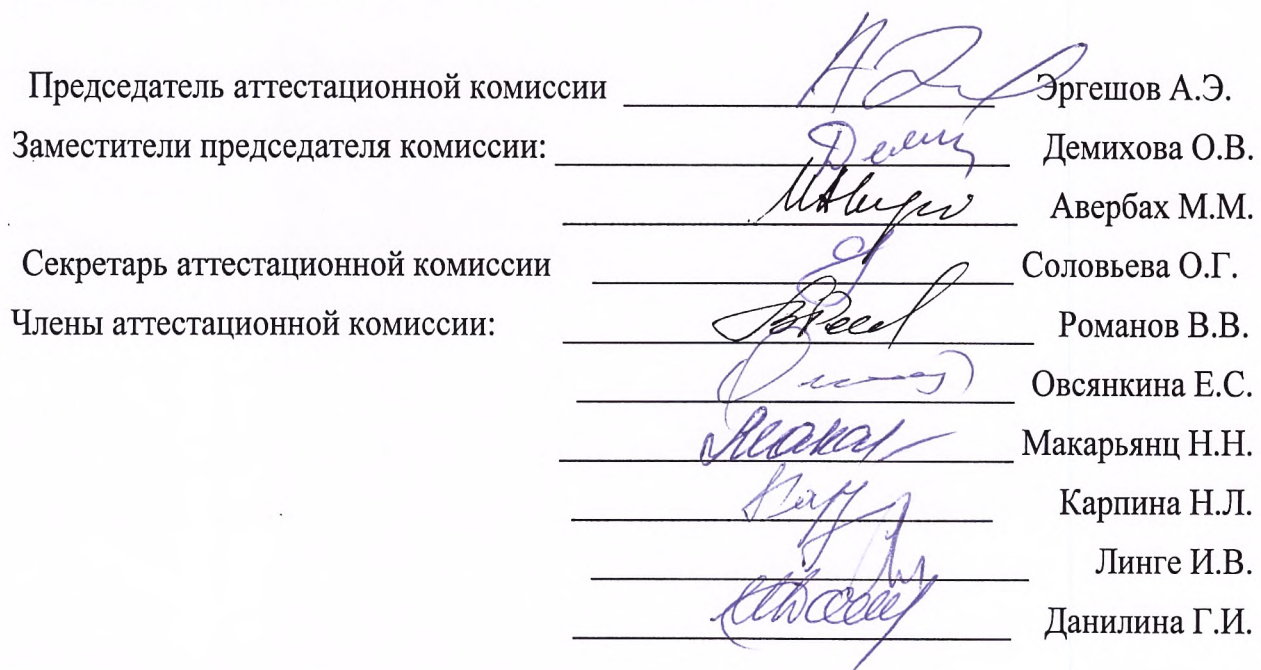 Председатель аттестационной комиссии Эргешов А.Э.
Заместители председателя комиссии: Демихова О.В.
Авербах М.М.
Секретарь аттестационной комиссии Соловьева О.Г.
Члены аттестационной комиссии: Романов В.В.
Овсянкина Е.С.
Макарьянц Н.Н.
Карпина Н.Л.
Линге И.В.
Данилина Г.И.